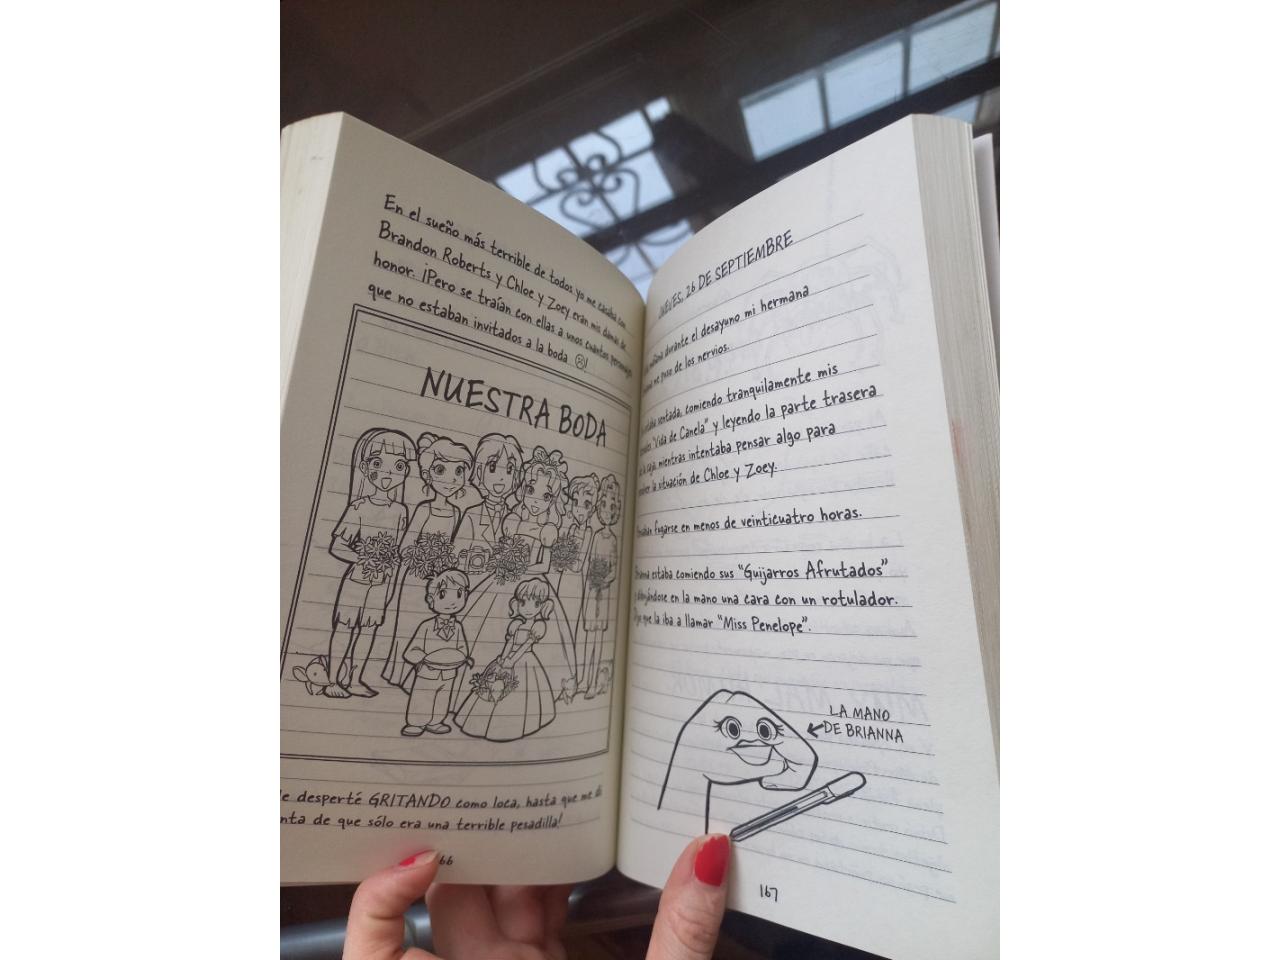 En el sueño más terrible de todos yo me casaba con
Brandon Roberts y Chloe y Zoey eran mis damas de
honor. ¡Pero se traían con ellas a unos cuantos personajes
que no estaban invitados a la boda ☹!
NUESTRA BODA
desperté GRITANDO como loca, hasta que me di
de que sólo era una terrible pesadilla!
66
JUEVES, 26 DE SEPTIEMBRE
mañana durante el desayuno mi hermana
me puso de los nervios.
sentada, comiendo tranquilamente mis
"Vida de Canela" y leyendo la parte trasera
la caja mientras intentaba pensar algo para
la situación de Chloe y Zoey.
fugarse en menos de veinticuatro horas.
estaba comiendo sus "Guijarros Afrutados"
en la mano una cara con un rotulador.
que la iba a llamar "Miss Penelope".
LA MANO
DE BRIANNA
167